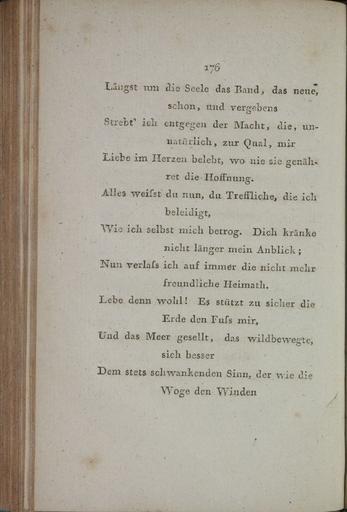 176
Längst um die Seele das Band, das neue,
schon, und vergebens
Strebt' ich entgegen der Macht, die, un-
natürlich, zur Qual, mir
Liebe im Herzen belebt, wo nie sie genäh-
ret die Hoffnung.
Alles weifst du nun, du Treffliche, die ich
beleidigt,
Wie ich selbst mich betrog. Dich kränke
nicht länger mein Anblick;
Nun verlafs ich auf immer die nicht mehr
freundliche Heimath.
Lebe denn wohl! Es stützt zu sicher die
Erde den Fufs mir,
Und das Meer gesellt, das wildbewegte,
sich besser
Dem stets schwankenden Sinn, der wie die
Woge den Winden